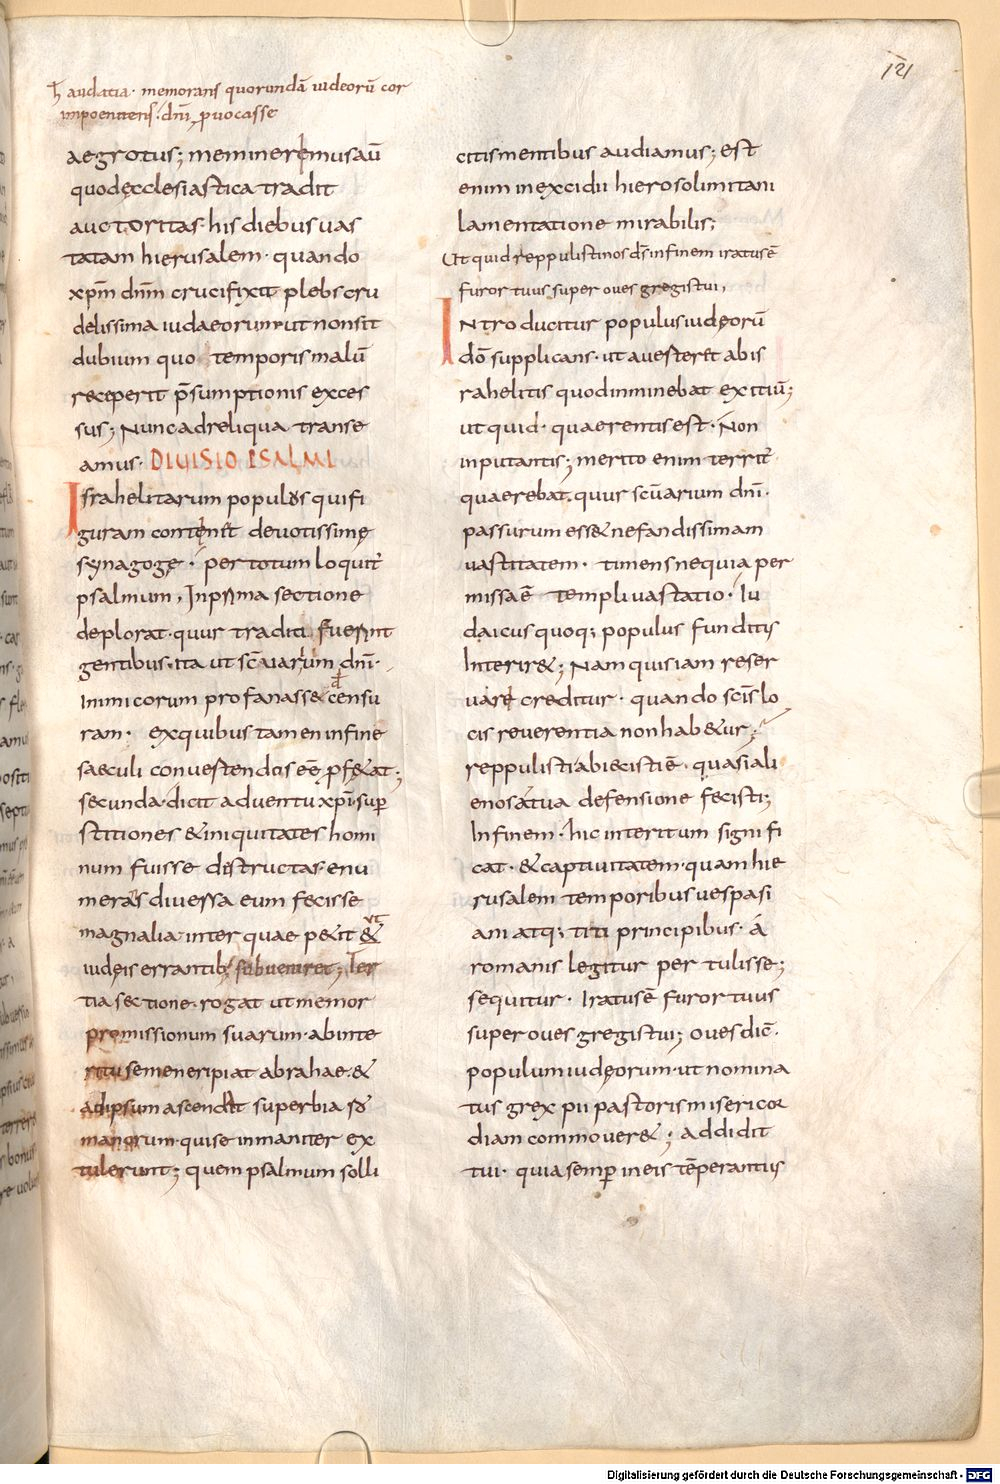 121
h̄ audatia · memorans quorundā iudeorū cor
inpoenitens · dn̄m ꝓuocasse
aegrotus; meminerimus aū
quod ęcclesiastica tradit
auctoritas · his diebus uas
tatam hierusalem · quando
xp̄m dn̄m crucifixit plebs cru
delissima iudaeorum · ut non sit
dubium quo temporis malū
receperit p̄sumptionis exces
sus; Nunc ad reliqua transe
amus · DIVISIO PSALMI
Israhelitarum populus qui fi
guram continet deuotissimę
synagogę · per totum loquit̄
psalmum, In prima sectione
deplorat · quur traditi fuerint
gentibus · ita ut sc̄uarum dn̄i ·
inimicorum profanass& censu
ram · ex quibus tamen in fine
saeculi conuertendos eē ꝓf&at;
secunda · dicit aduentu xp̄i · suꝑ
stitiones & iniquitates homi
num fuisse distructas · enu
merans diuersa eum fecisse
magnalia · inter quae p&it &
iudęis errantib; subueniret; Ter
tia sectione · rogat ut memor
promissionum suarum · ab inte
ritu semen eripiat abrahae · &
ad ipsum ascendat superbia
manorum · qui se inmaniter ex
tulerunt; quem psalmum solli
citis mentibus audiamus; est
enim in excidii hierosolimitani
lamentatione mirabilis;
Ut quid reppulisti nos ds̄ in finem iratus ē
furor tuus super oues gregis tui,
Introducitur populus iudęorū
dō supplicans · ut auerteret ab is
rahelitis quod inminebat exitiū;
ut quid · quaerentis est · Non
inputantis; merito enim territ̄
quaerebat · quur sc̄uarium dn̄i ·
passurum ess& nefandissimam
uastitatem · timens ne quia per
missa ē templi uastatio · Iu
daicus quoq; populus funditis
interir&; Nam quis iam reser
uare creditur · quando scīs lo
cis reuerentia non hab&ur;
reppulisti abiecisti ē · quasi ali
enos a tua defensione fecisti;
In finem · hic interitum signifi
cat · & captiuitatem · quam hie
rusalem temporibus uespasi
ani atq; titi principibus · á
romanis legitur pertulisse;
sequitur · Iratus ē furor tuus
super oues gregis tui; oues dic̄ ·
populum iudęorum · ut nomina
tus grex pii pastoris misericor
diam commouer&; addidit
tui · quia semꝑ in eis tēperantius
Digitalisierung gefördert durch die Deutsche Forschungsgemeinschaft - DFG